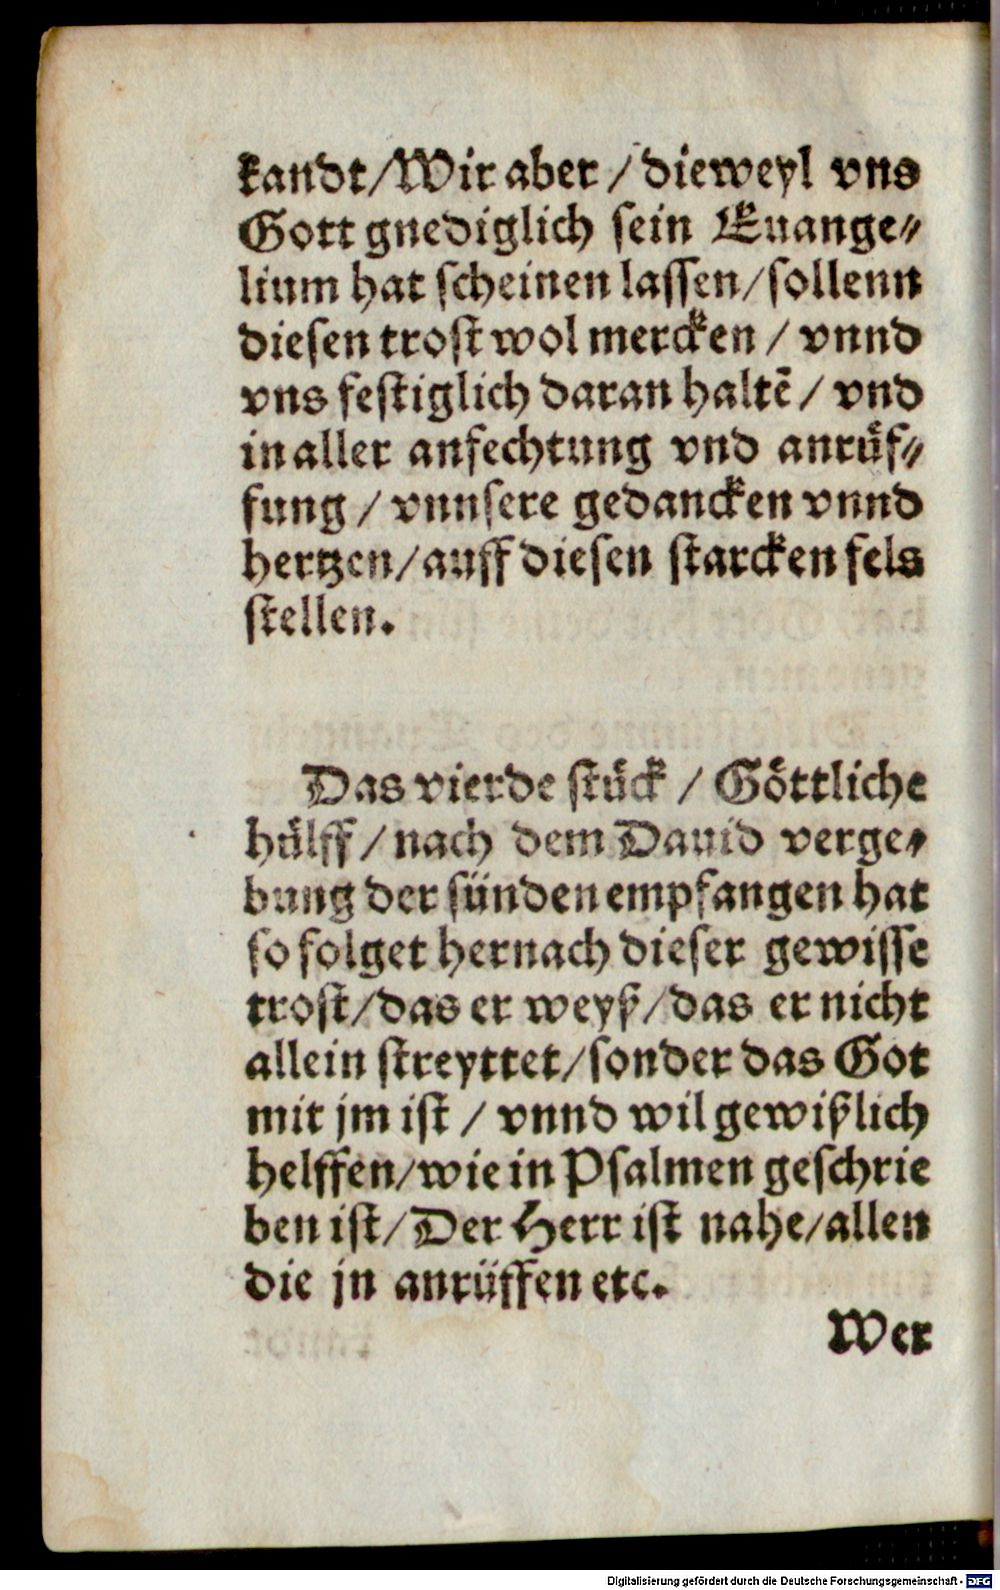 kandt/Wir aber/dieweyl vns
Gott gnediglich sein Euange⸗
lium hat scheinen lassen/sollenn
diesen trost wol mercken/vnnd
vns festiglich daran haltē/vnd
in aller anfechtung vnd anrüf⸗
fung/vnnsere gedancken vnnd
hertzen/auff diesen starcken fels
stellen.
Das vierde stück/Göttliche
hülff/nach dem Dauid verge⸗
bung der sünden empfangen hat
so folget hernach dieser gewisse
trost/das er weyß/das er nicht
allein streyttet/sonder das Got
mit jm ist/vnnd wil gewißlich
helffen/wie in Psalmen geschrie
ben ist/Der Herr ist nahe/allen
die jn anrüffen etc.
Wer
Digitalisierung gefördert durch die Deutsche Forschungsgemeinschaft - DFG